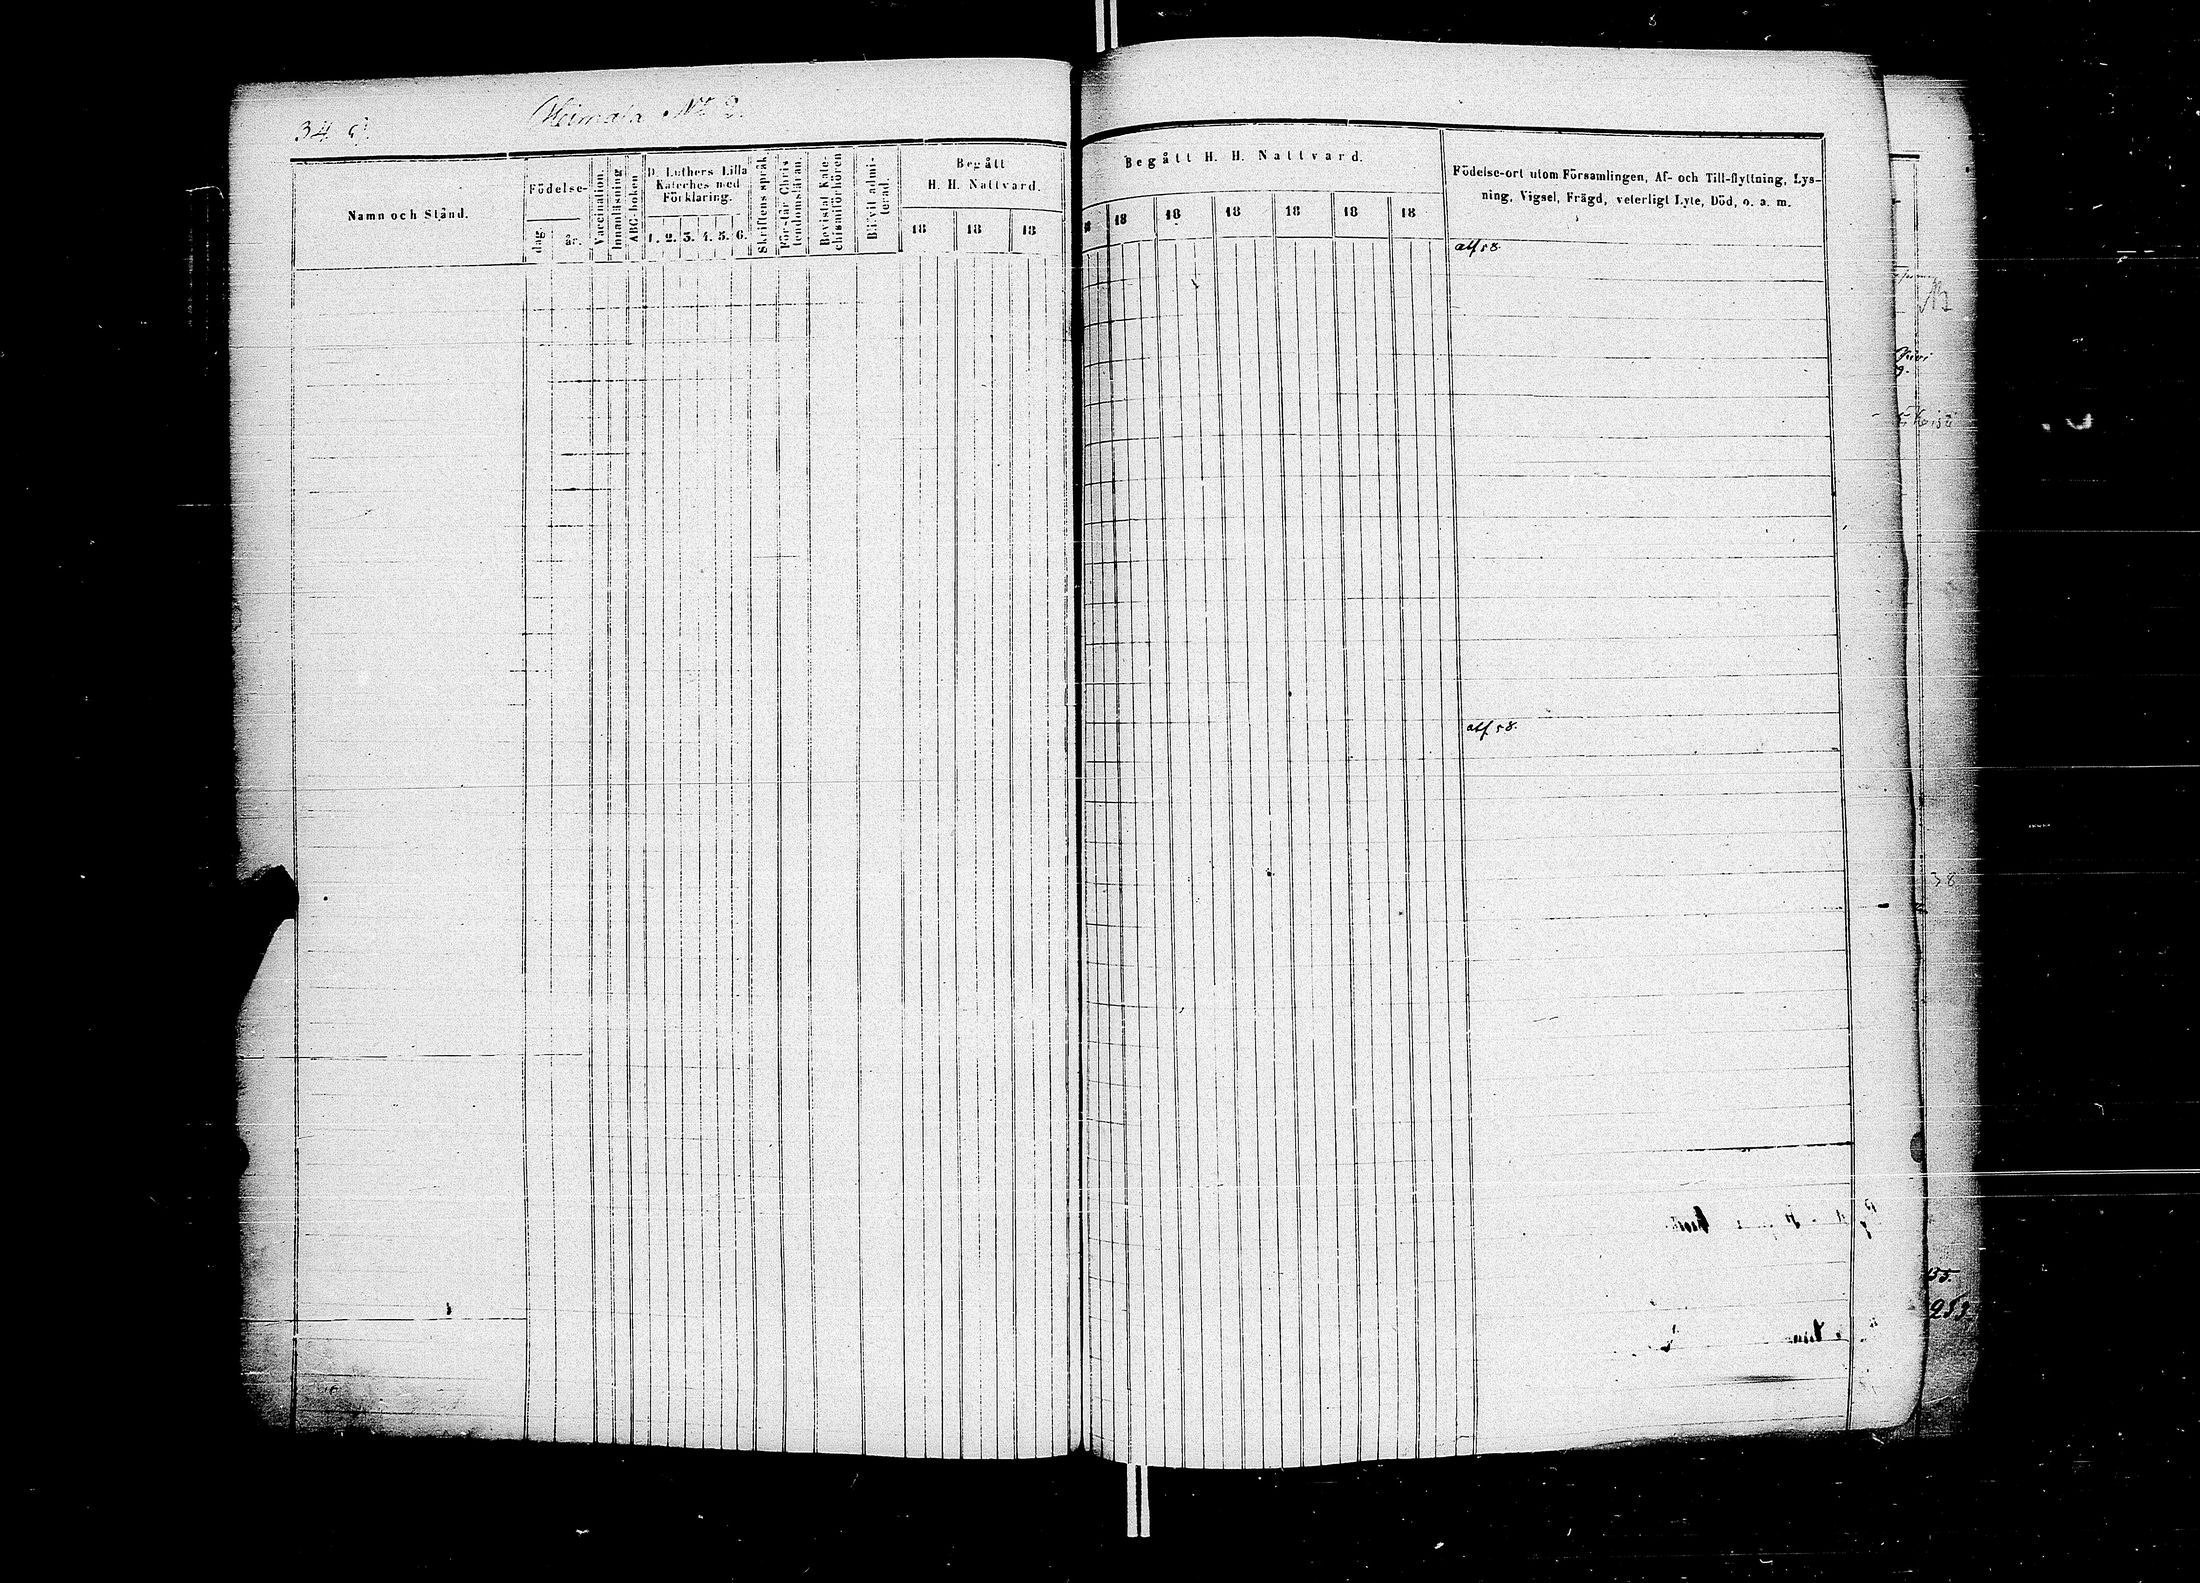 34
Heimala No 2.
Namn och Stånd.
Födelse-
dag
år.
Vaccination.
Innanläsning
ABC-boken
D. Luthers Lilla
Kateches med
Förklaring.
1. 2. 3. 4. 5. 6.
Skriftens språk.
Förstår Chris-
tendomsläran.
Bevistat Kate-
chismiförhören
Blifvit admit-
terad.
Begått
H. H. Nattvard.
18 18 18
Begått H. H. Nattvard.
18 18 18 18 18 18 18
Födelse-ort utom Församlingen, Af- och Till-flyttning, Lys-
ning, Vigsel, Frägd, veterligt Lyte, Död, o. a. m.
att 58.
att 58.
55.